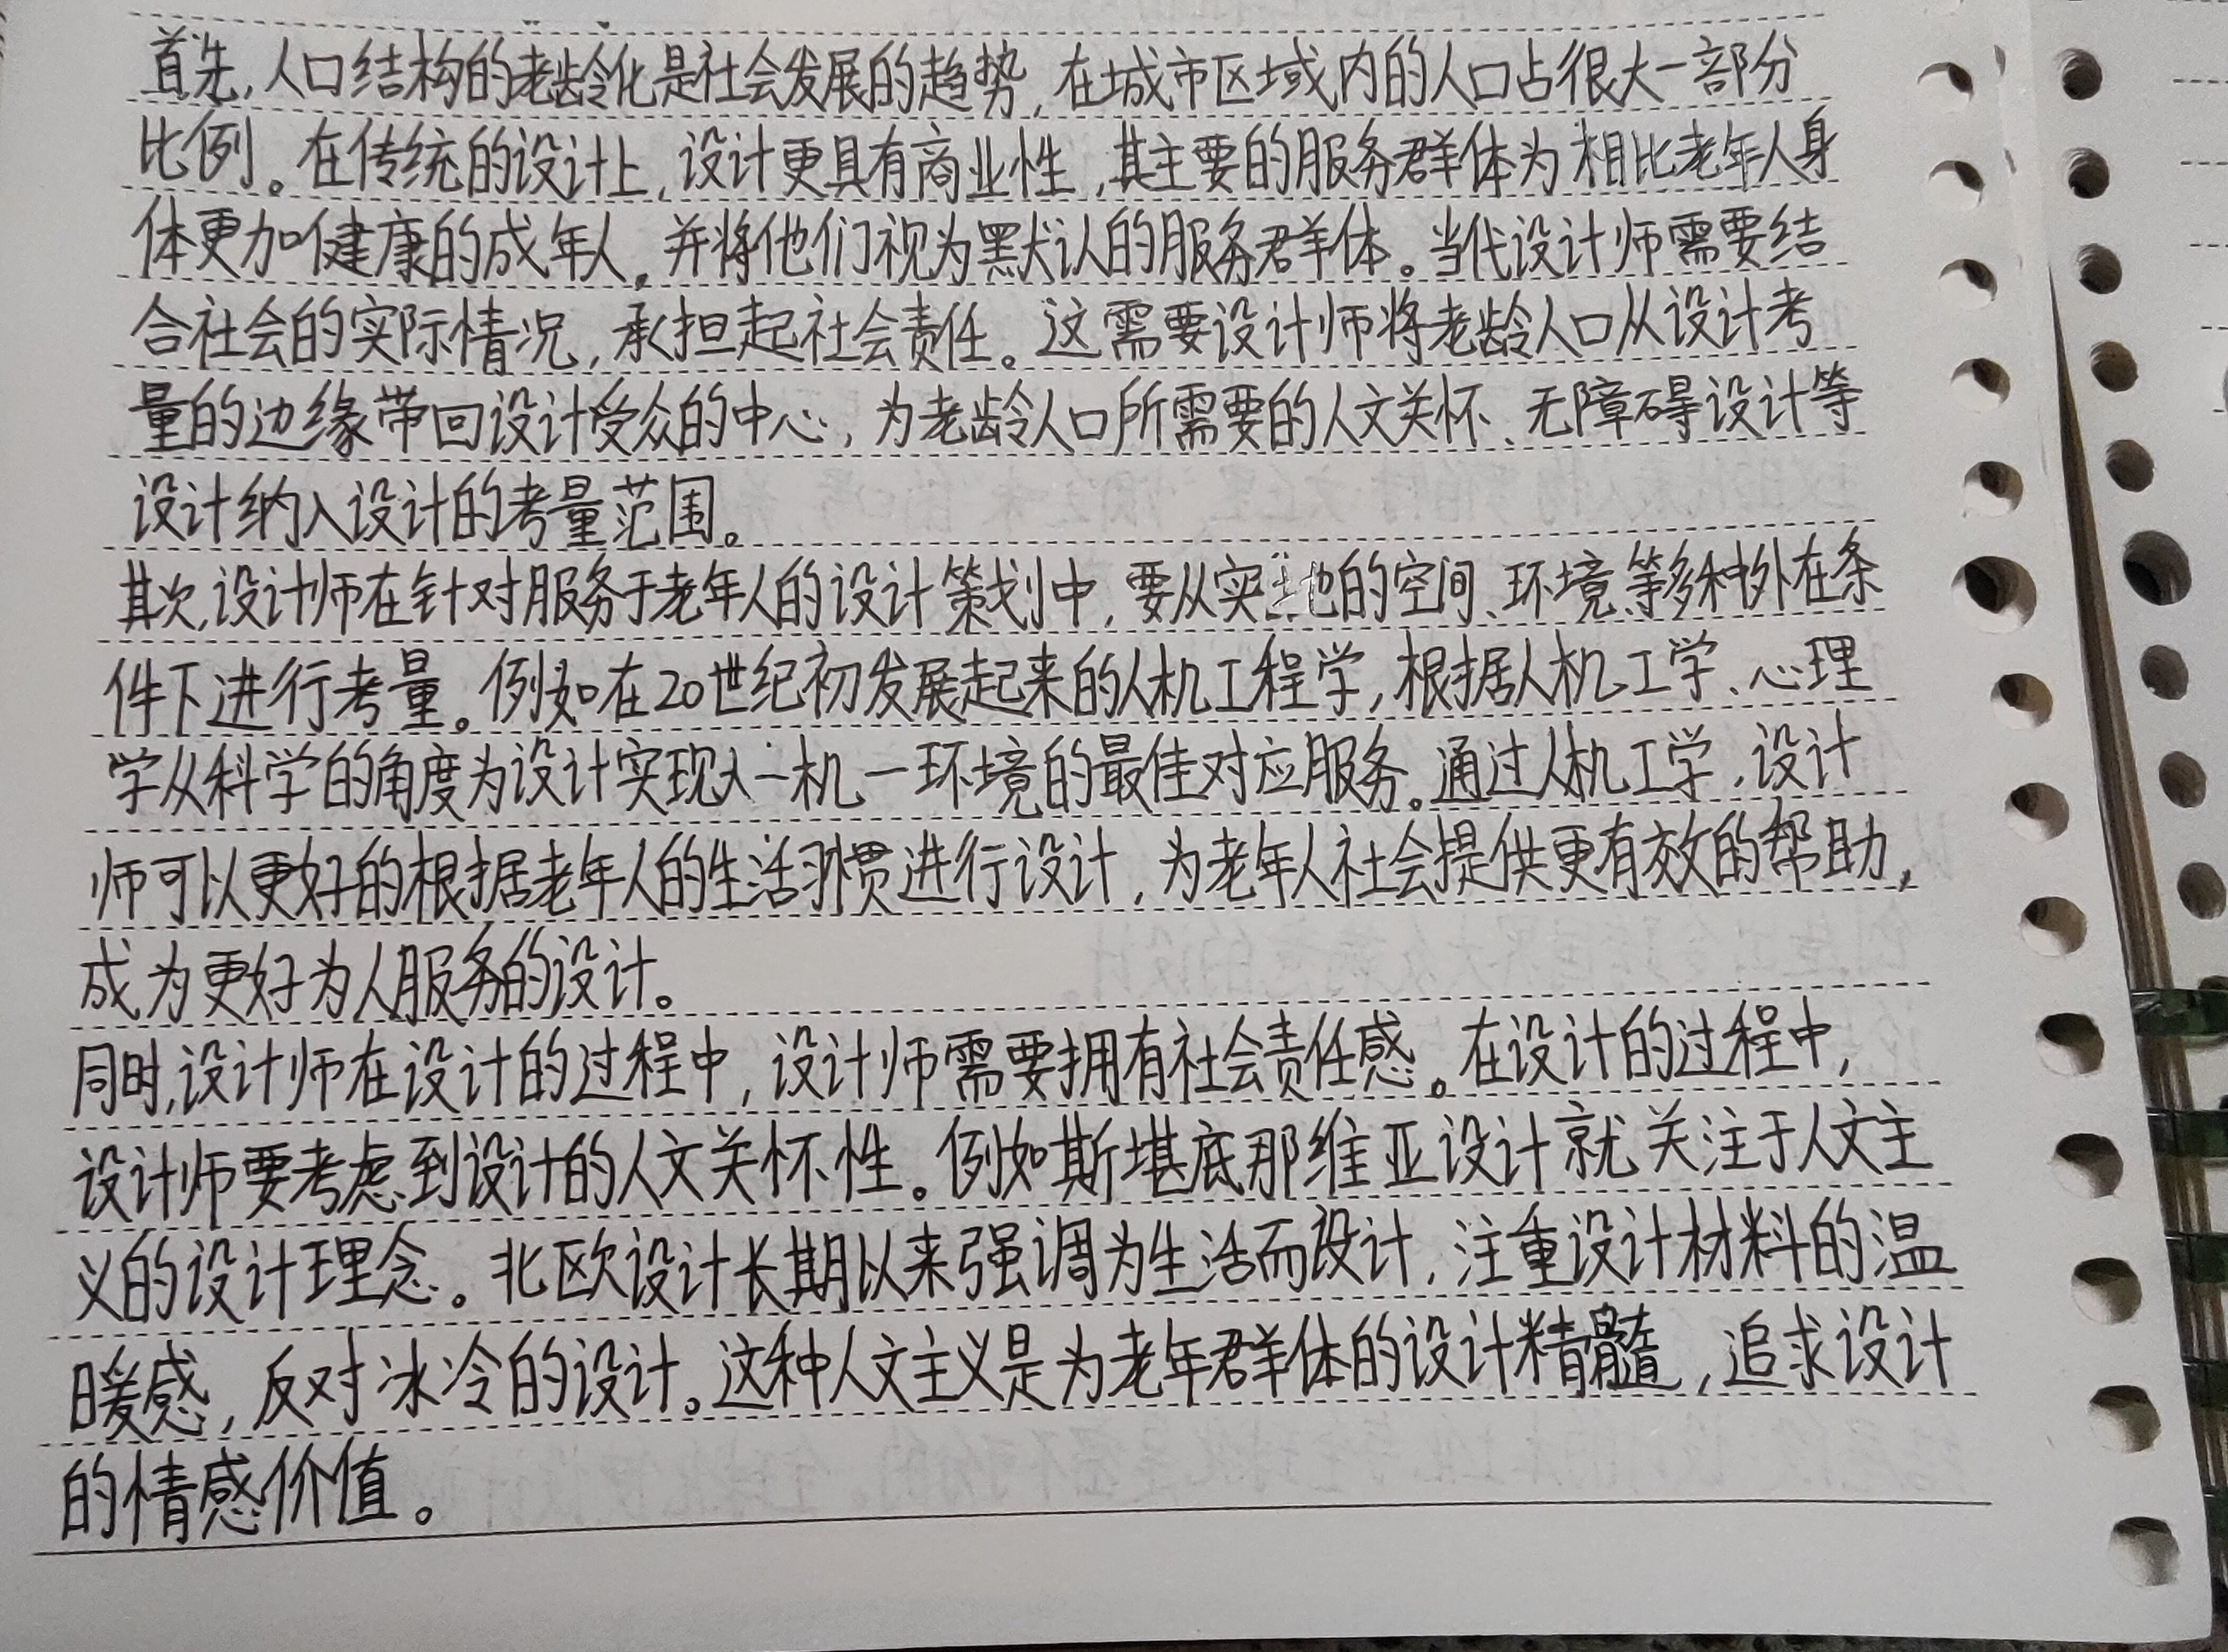 首先,人口结构的老龄化是社会发展的趋势,在城市区域内的人口占很大一部分
比例。在传统的设计上,设计更具有商业性,其主要的服务群体为相比老年人身
体更加健康的成年人。并将他们视为默认的服务群体。当代设计师需要结
合社会的实际情况,承担起社会责任。这需要设计师将老龄人口从设计考
量的边缘带回设计受众的中心,为老龄人口所需要的人文关怀、无障碍设计等
设计纳入设计的考量范围。
其次,设计师在针对服务于老年人的设计策划中,要从实地的空间、环境等多种外在条
件下进行考量。例如在20世纪初发展起来的人机工程学,根据人机工学、心理
学从科学的角度为设计实现人一机一环境的最佳对应服务。通过人机工学,设计
师可以更好的根据老年人的生活习惯进行设计,为老年人社会提供更有效的帮助,
成为更好为人服务的设计。
同时,设计师在设计的过程中,设计师需要拥有社会责任感。在设计的过程中,
设计师要考虑到设计的人文关怀性。例如斯堪底那维亚设计就关注于人文主
义的设计理念。北欧设计长期以来强调为生活而设计,注重设计材料的温
暖感,反对冰冷的设计。这种人文主义是为老年群体的设计精髓,追求设计
的情感价值。